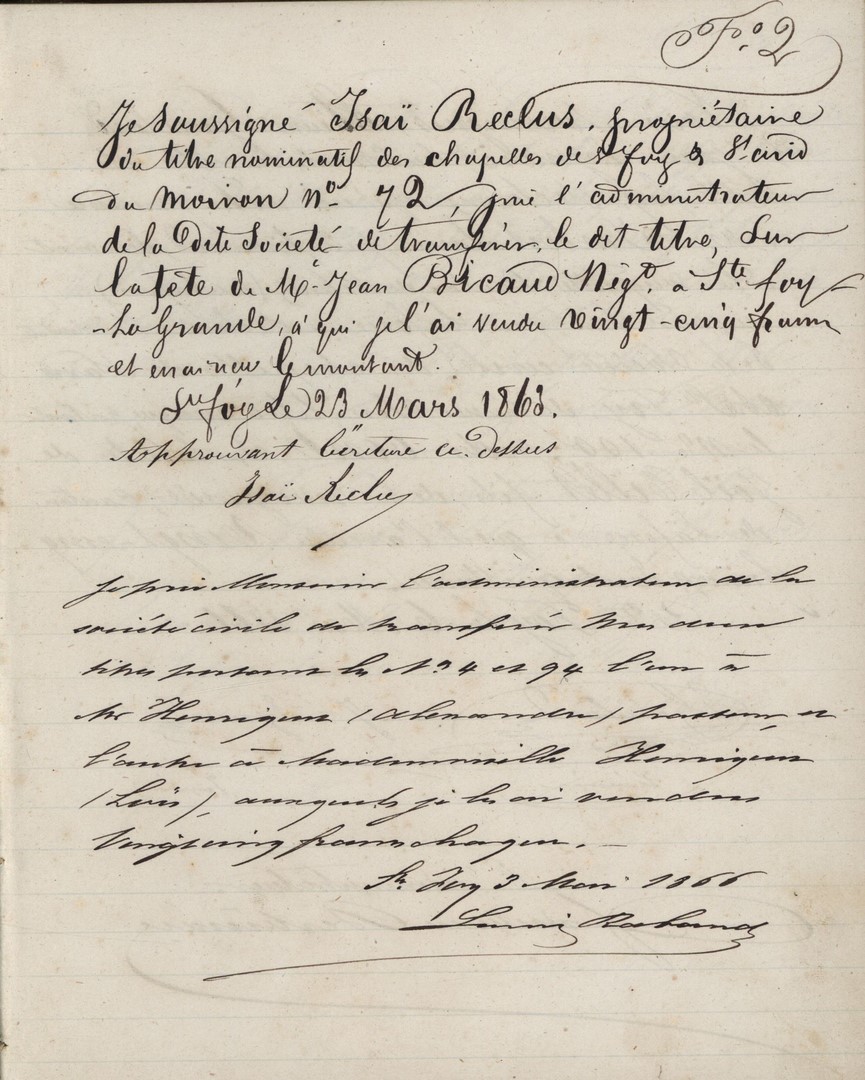 F.º 2
Je soussigné Isaï Reclus, propriétaire
du titre nominatif des chapelles de Ste foy & St avid
du moiron nº 72, prie l'administrateur
de la Dite Société de transférer, le dit titre, Sur
la tête de Mr Jean Bricaud Négt. à Ste foy
-La Grande, à qui je l'ai vendu vingt-cinq francs
et en ai reçu le montant.
Ste foy Le 23 Mars 1863.
Approuvant l'écriture ci-dessus
Isaï Reclus
Je prie Monsieur l'administrateur de la
société civile de transférer mes deux
titres portant les Nos 4 et 94 l'un à
Mr Henriquet (Alexandre) pasteur, et
l'autre à Mademoiselle Henriquet
(Loïs), auxquels je les ai vendus
vingt cinq francs chaque. —
Ste Foy 3 Mai 1866
Rabaud